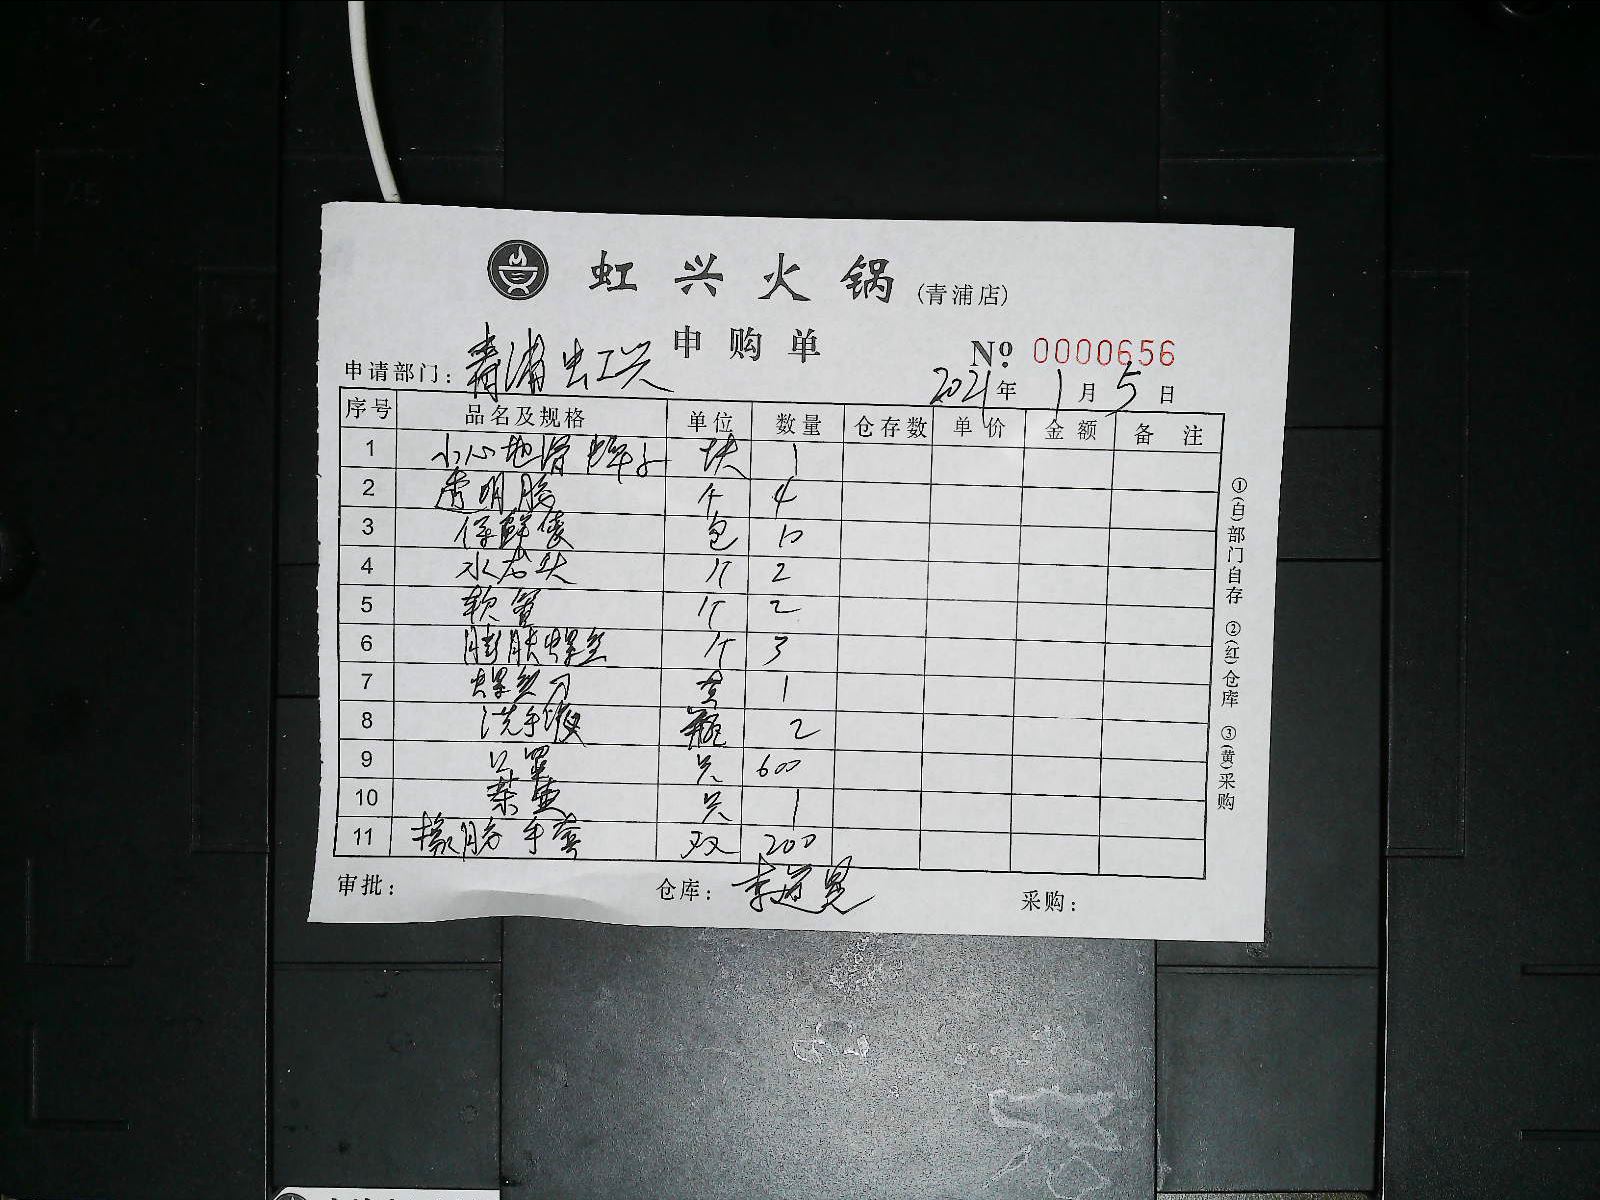 虹兴火锅(青浦店)
申购单
№ 0000656
申请部门: 青浦虹兴
2021年 1月 5日
序号 品名及规格 单位 数量 仓存数 单价 金额 备注
1 小心地滑牌子 块 1
2 透明胶 个 4
3 保鲜袋 包 10
4 水龙头 个 2
5 软管 个 2
6 膨胀螺丝 个 3
7 螺丝刀 1
8 洗手液 瓶 2
9 口罩 只 600
10 只 1
11 橡胶手套 双 200
审批: 仓库: 采购:
①(白)部门自存 ②(红)仓库 ③(黄)采购